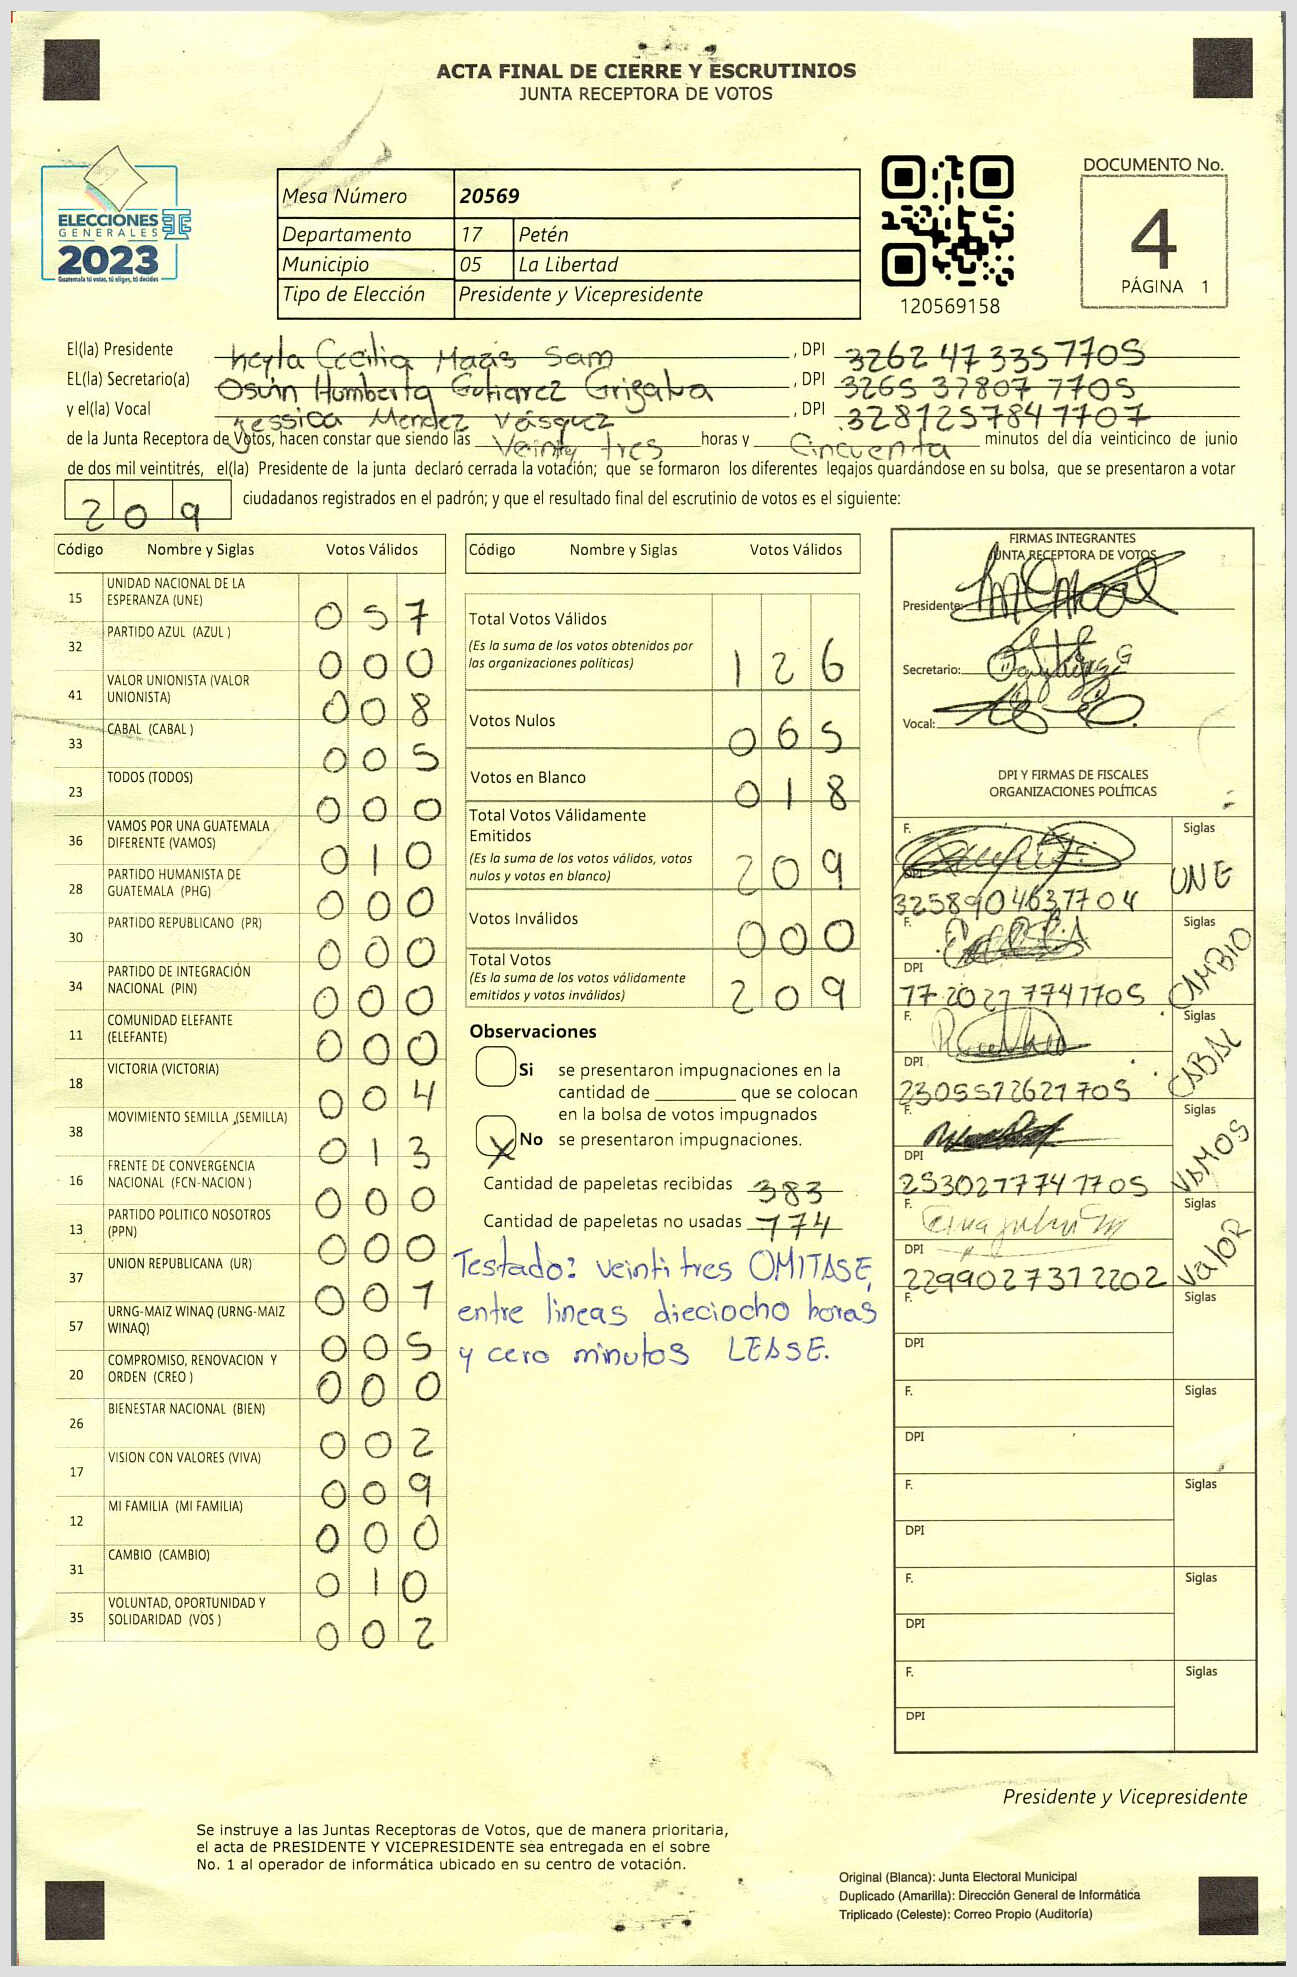 ACTA FINAL DE CIERRE Y ESCRUTINIOS
JUNTA RECEPTORA DE VOTOS
ELECCIONES
GENERALES
2023
Guatemala tú votas, tú eliges, tú decides
Mesa Número 20569
Departamento 17 Petén
Municipio 05 La Libertad
Tipo de Elección Presidente y Vicepresidente
120569158
DOCUMENTO No.
4
PÁGINA 1
El(la) Presidente Cecilia Maas Sam , DPI 3262 47335 7705
EL(la) Secretario(a) Humberto Gutiarez , DPI 3265 37807 7705
y el(la) Vocal Jessica Mendez Vásquez , DPI 3281257847707
de la Junta Receptora de Votos, hacen constar que siendo las Veinty tres horas y Cincuenta minutos del día veinticinco de junio
de dos mil veintitrés, el(la) Presidente de la junta declaró cerrada la votación; que se formaron los diferentes legajos quardándose en su bolsa, que se presentaron a votar
209 ciudadanos registrados en el padrón; y que el resultado final del escrutinio de votos es el siguiente:
Código Nombre y Siglas Votos Válidos
15 UNIDAD NACIONAL DE LA ESPERANZA (UNE) 057
32 PARTIDO AZUL (AZUL ) 000
41 VALOR UNIONISTA (VALOR UNIONISTA) 008
33 CABAL (CABAL ) 005
23 TODOS (TODOS) 000
36 VAMOS POR UNA GUATEMALA DIFERENTE (VAMOS) 010
28 PARTIDO HUMANISTA DE GUATEMALA (PHG) 000
30 PARTIDO REPUBLICANO (PR) 000
34 PARTIDO DE INTEGRACIÓN NACIONAL (PIN) 000
11 COMUNIDAD ELEFANTE (ELEFANTE) 000
18 VICTORIA (VICTORIA) 004
38 MOVIMIENTO SEMILLA (SEMILLA) 013
16 FRENTE DE CONVERGENCIA NACIONAL (FCN-NACION ) 000
13 PARTIDO POLITICO NOSOTROS (PPN) 000
37 UNION REPUBLICANA (UR) 001
57 URNG-MAIZ WINAQ (URNG-MAIZ WINAQ) 005
20 COMPROMISO, RENOVACION Y ORDEN (CREO ) 000
26 BIENESTAR NACIONAL (BIEN) 002
17 VISION CON VALORES (VIVA) 009
12 MI FAMILIA (MI FAMILIA) 000
31 CAMBIO (CAMBIO) 010
35 VOLUNTAD, OPORTUNIDAD Y SOLIDARIDAD (VOS ) 002
Código Nombre y Siglas Votos Válidos
Total Votos Válidos 126
(Es la suma de los votos obtenidos por
las organizaciones políticas)
Votos Nulos 065
Votos en Blanco 018
Total Votos Válidamente
Emitidos 209
(Es la suma de los votos válidos, votos
nulos y votos en blanco)
Votos Inválidos 000
Total Votos 209
(Es la suma de los votos válidamente
emitidos y votos inválidos)
Observaciones
Si se presentaron impugnaciones en la
cantidad de ________ que se colocan
en la bolsa de votos impugnados
X No se presentaron impugnaciones.
Cantidad de papeletas recibidas 383
Cantidad de papeletas no usadas 174
Testado: veintitres OMITASE,
entre lineas dieciocho horas
y cero minutos LEASE.
FIRMAS INTEGRANTES
JUNTA RECEPTORA DE VOTOS
Presidente:
Secretario:
Vocal:
DPI Y FIRMAS DE FISCALES
ORGANIZACIONES POLÍTICAS
F. Siglas
DPI 3258904637704 UNE
F. Siglas
DPI CAMBIO
F. Siglas
DPI 2305572621705 CABAL
F. Siglas
DPI 2530277741705 VAMOS
F. Siglas
DPI 2299027372202 Valor
F. Siglas
DPI
F. Siglas
DPI
F. Siglas
DPI
F. Siglas
DPI
F. Siglas
DPI
Presidente y Vicepresidente
Se instruye a las Juntas Receptoras de Votos, que de manera prioritaria,
el acta de PRESIDENTE Y VICEPRESIDENTE sea entregada en el sobre
No. 1 al operador de informática ubicado en su centro de votación.
Original (Blanca): Junta Electoral Municipal
Duplicado (Amarilla): Dirección General de Informática
Triplicado (Celeste): Correo Propio (Auditoría)